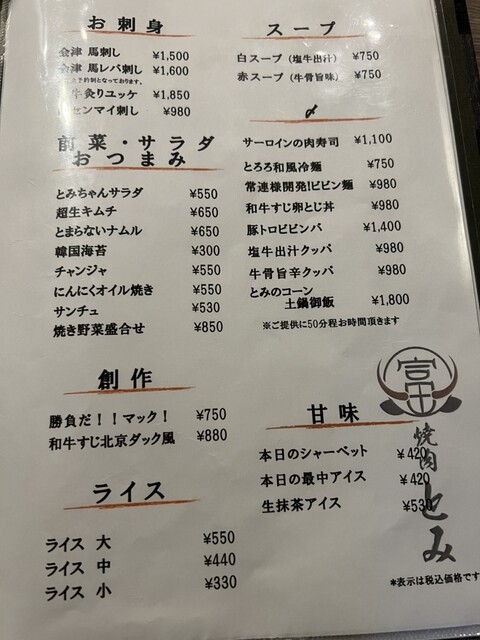 お刺身
会津 馬刺し ¥1,500
会津 馬レバ刺し ¥1,600
予約制となっております。
牛炙りユッケ ¥1,850
センマイ刺し ¥980
前菜・サラダ
おつまみ
とみちゃんサラダ ¥550
超生キムチ ¥650
とまらないナムル ¥650
韓国海苔 ¥300
チャンジャ ¥550
にんにくオイル焼き ¥550
サンチュ ¥530
焼き野菜盛合せ ¥850
創作
勝負だ!!マック! ¥750
和牛すじ北京ダック風 ¥880
ライス
ライス 大 ¥550
ライス 中 ¥440
ライス 小 ¥330
スープ
白スープ (塩牛出汁) ¥750
赤スープ (牛骨旨味) ¥750
〆
サーロインの肉寿司 ¥1,100
とろろ和風冷麺 ¥750
常連様開発!ビビン麺 ¥980
和牛すじ卵とじ丼 ¥980
豚トロビビンバ ¥1,400
塩牛出汁クッパ ¥980
牛骨旨辛クッパ ¥980
とみのコーン
土鍋御飯 ¥1,800
※ご提供に50分程お時間頂きます
甘味
本日のシャーベット ¥420
本日の最中アイス ¥420
生抹茶アイス ¥530
富
焼肉とみ
*表示は税込価格です